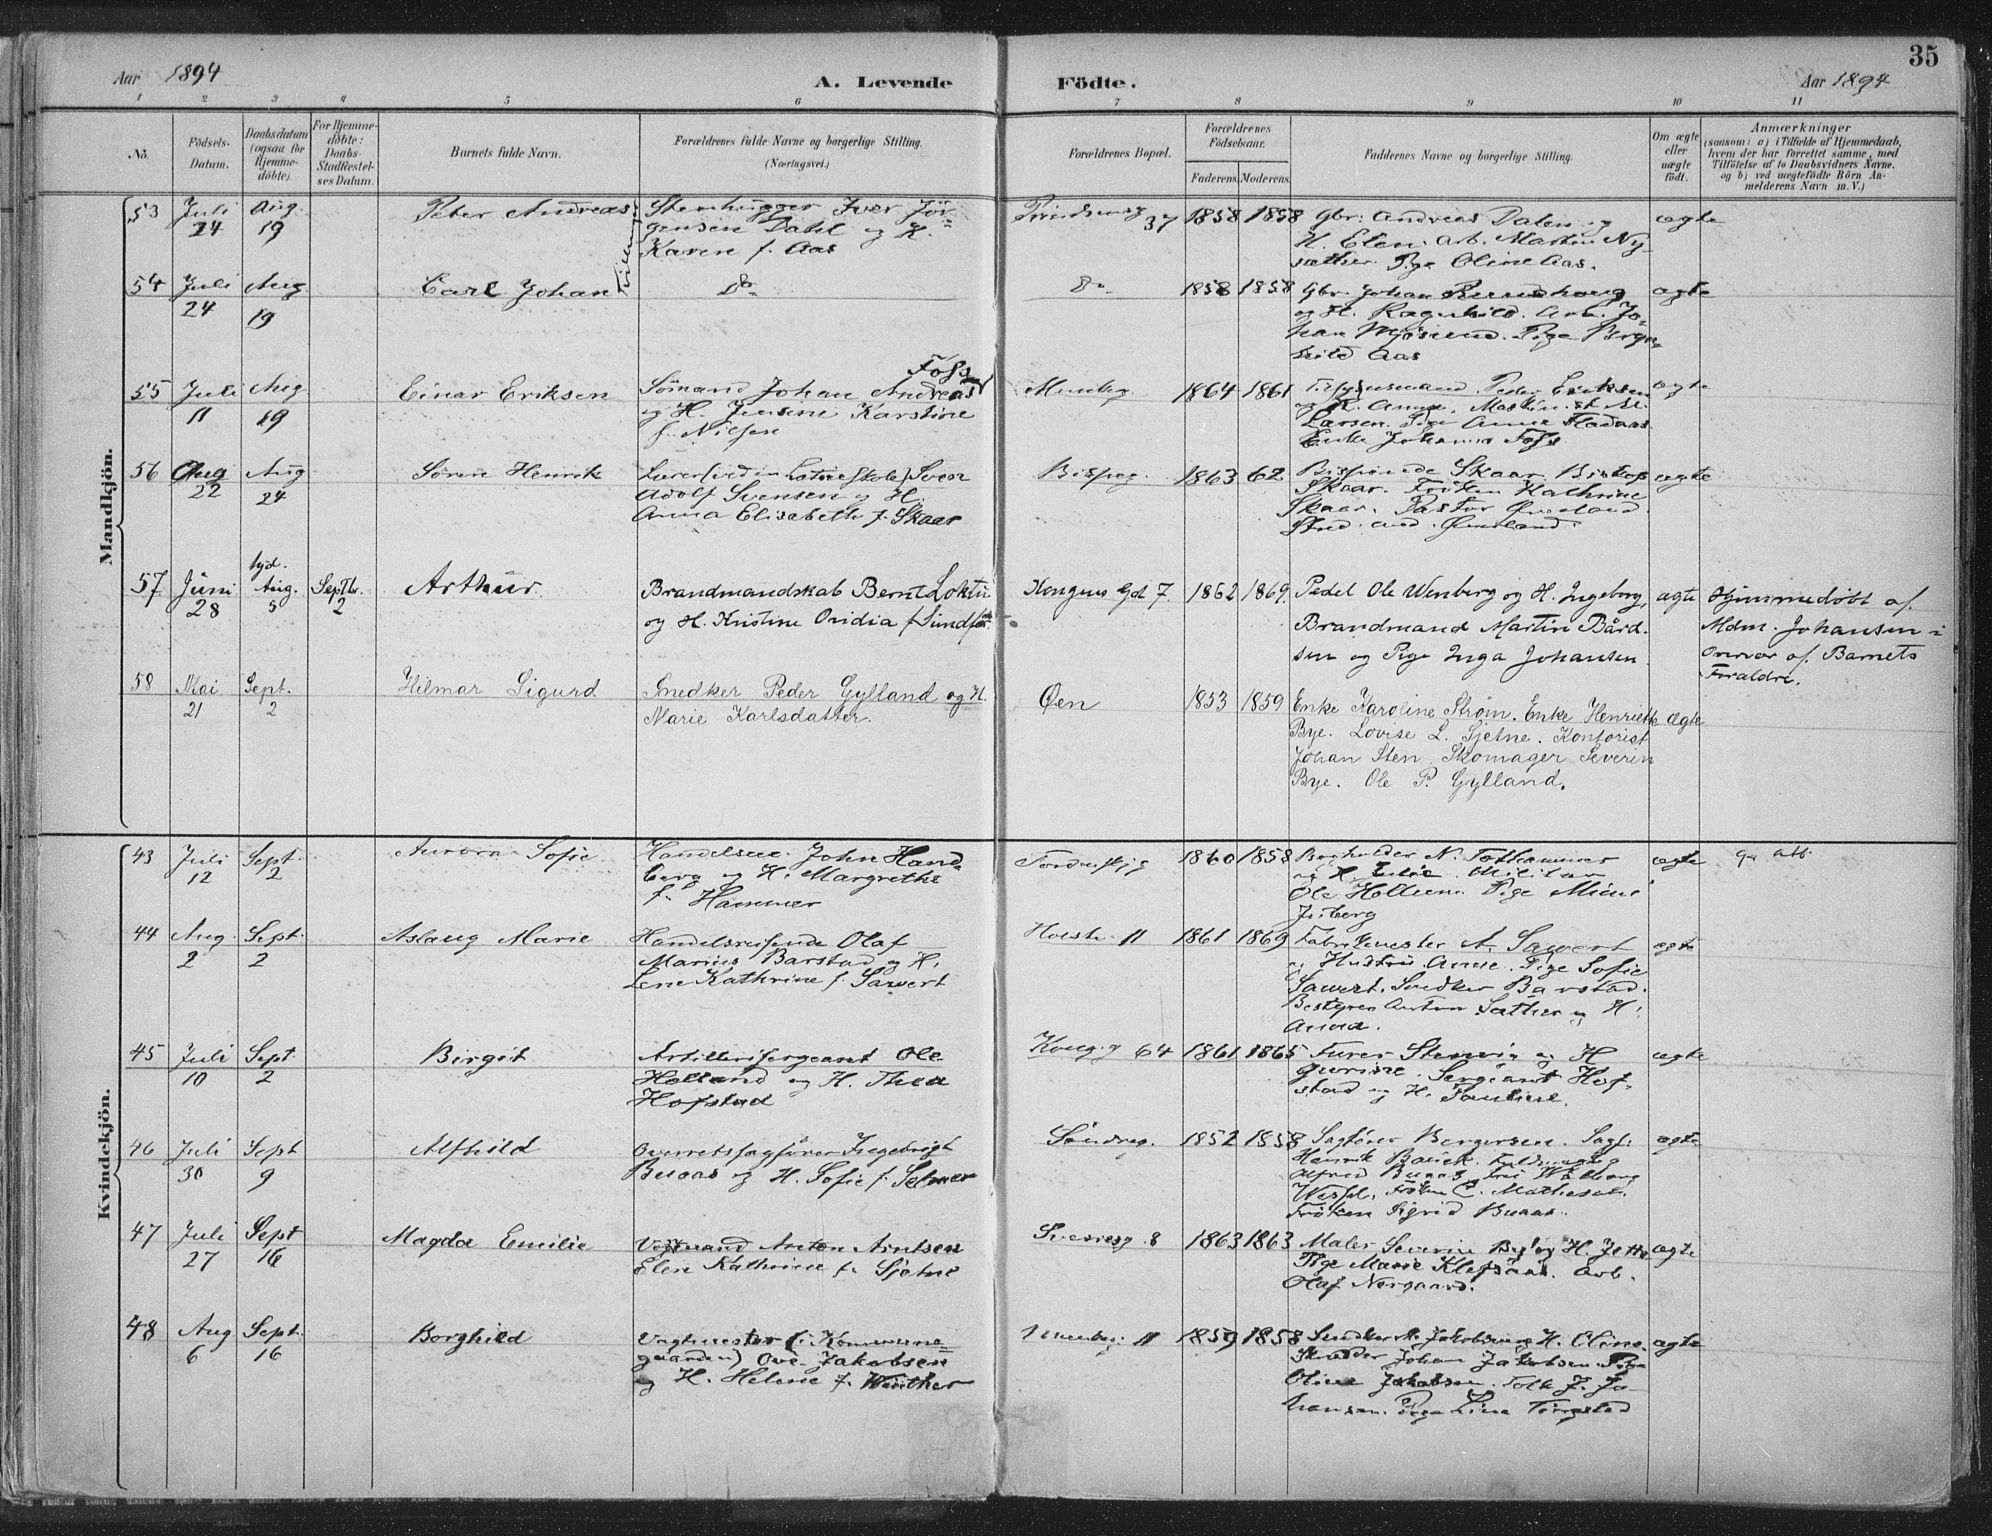 35
Aar 1894
A. Levende
Födte.
Aar 1894
1 2 3 4 5 6 7 8 9 10 11
No.
Födsels-
Datum.
Daabsdatum
(ogsaa for
Hjemme-
döbte).
For Hjemme-
döbte:
Daabs-
Stadfæstel-
ses Datum.
Barnets fulde Navn.
Forældrenes fulde Navne og borgerlige Stilling.
(Næringsvei.)
Forældrenes Bopæl.
Forældrenes
Födselsaar.
Faderens. Moderens.
Faddernes Navne og borgerlige Stilling.
Om ægte
eller
uægte
födt.
Anmærkninger
(saasom: a) i Tilfælde af Hjemmedaab,
hvem der har forrettet samme, med
Tilföielse af to Daabsvidners Navne,
og b) ved uægtefödte Börn An-
melderens Navn m. V.)
Mandkjön.
53 Juli 24 Aug. 19
Peter Andreas
Tvilling
Stenhugger Iver Jör-
gensen Dahl og H.
Karen f. Aas
Prindsensg 37
1858 1858
Gbr. Andreas Dalen og
H. Elen. Arb. Martin Ny-
sæther. Pige Oline Aas.
ægte
54 Juli 24 Aug 19
Carl Johan
Do
Do
1858 1858
Gbr. Johan
og H. Ragnhild. Arb. Jo-
han Mjösund. Pige Berg-
hild Aas
ægte
55 Juli 11 Aug 19
Einar Eriksen
Foss
Sömand Johan Andreas
og H. Jensine Karstine
f. Nilsen
Munkeg.
1864 1861
Peder Eriksen
og H. Anna.
Larsen. Pige Anna Fladaas.
Enke Johanna Foss
ægte
56 Aug 22 Aug 24
Sören Henrik
Lærer (ved den Latinskole) Sven
Adolf Svensen og H.
Anna Elisabeth f. Skaar
Bispeg.
1863 62
Bispinde Skaar. Biskop
Skaar. Fröken Kathrine
Skaar. Pastor Överland.
Stud. Överland.
ægte
57 Juni 28 hjd. Aug. 5 Septb. 2
Arthur
Brandmandskab Bernt Loktu
og H. Kristine Ovidia f. Sundfær
Kongens Gd 7.
1862 1869.
Pedel Ole Wenberg og H. Ingeborg,
Brandmand Martin Bård-
sen og Pige Inga Johansen.
ægte
Hjemmedöbt af
Mdm. Johansen i
Overvær af Barnets
Foraldre.
58 Mai 21 Sept. 2
Hilmar Sigurd
Snedker Peder Gylland og H.
Marie Karlsdatter.
Øen
1853 1859
Enke Karoline Strøm. Enke Henriette
Bye. Lovise L. Sjetne. Kontorist
Johan Sten. Skomager Severin
Bye. Ole P. Gylland.
ægte
Kvindekjön.
43 Juli 12 Sept. 2
Aurora Sofie
Handelsm. John Hand-
berg og H. Margrethe
f. Hammer
Tordenskjg
1860 1858
Bogholder N. Torhammer
og H. Julie.
Ole Hollum. Pige Mine
Juberg
ægte
44 Aug. 2 Sept. 2
Aslaug Marie
Handelsreisende Olaf
Marius Barstad og H.
Lene Kathrine f. Sawert
Holstv. 11
1861 1869
Fabrikmester A. Sawert
og Hustru Anne. Pige Sofie
Sawert. Snedker Barstad.
Bestyrer Anton Sæther og H.
Anna.
ægte
45 Juli 10 Sept. 2
Birgit
Artillerisergeant Ole
Holland og H. Thea
Hofstad
Kongsg 64
1861 1865
Furer Stenvig og H
Gurine. Sergeant Hof-
stad og H. Pauline.
ægte
46 Juli 30 Sept 9
Alfhild
Overretssagfører Ingebrigt
Buaas og H. Sofie f. Selmer
Söndreg.
1852 1858
Sagförer Bergersen. Sagf.
Henrik Bauck.
Alfred Buaas. Fru Walborg
Wessel. Fröken C. Mathesen.
Fröken Sigrid Buaas.
ægte
47 Juli 27 Sept 16
Magda Emilie
Vognmand Anton Arntsen
Elen Kathrine f. Sjetne
Sverresg. 8
1863 1863
Maler Severin Bye og H. Jette
Pige Marie Klefsaas. Arb.
Olaf Norgaard.
ægte
48 Aug 6 Sept. 16
Borghild
Vagtmester (i Kommune-
gaarden) Ove Jakobsen
og H. Helene f. Winther
Munkeg. 11
1859 1858
Snedker M. Jakobsen og H. Oline.
Skrædder Johan Jakobsen. Pige
Oline Jakobsen. Tolk J. Jo-
hansen. Pige Lina Törrestad
ægte